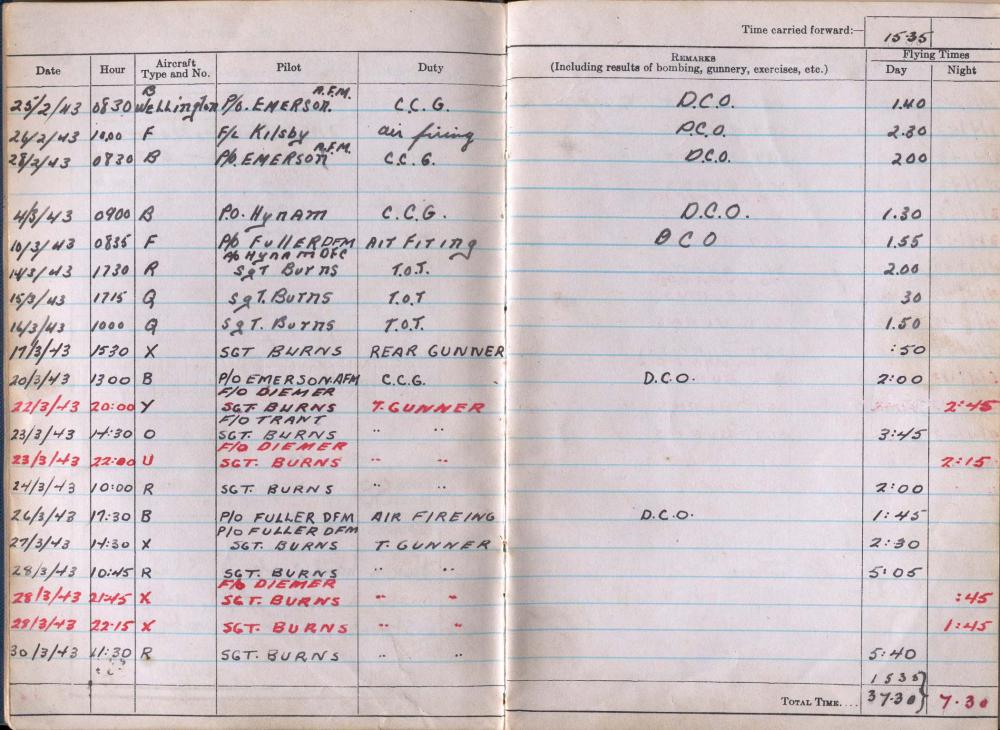 Time carried forward:— 1535
Date Hour Aircraft Type and No. Pilot Duty Remarks (Including results of bombing, gunnery, exercises, etc.) Flying Times Day Night
B A.F.M.
25/2/43 0830 Wellington P/o. EMERSON. C.C.G. D.C.O. 1.40
26/2/43 1000 F F/L Kilsby air firing D.C.O. 2.30
A.F.M.
28/2/43 0830 B P/o. EMERSON C.C.G. D.C.O. 200
4/3/43 0900 B P.O. HyNAM C.C.G. D.C.O. 1.30
10/3/43 0835 F P/o FullER DFM AIT FITing D C O 1.55
P/o HyNAM DFC
14/3/43 1730 R SgT Burns T.O.T. 2.00
15/3/43 1715 Q SgT. Burns T.O.T 30
16/3/43 1000 Q SgT. Burns T.O.T. 1.50
17/3/43 1530 X SGT BURNS REAR GUNNER :50
20/3/43 1300 B P/O EMERSON.AFM C.C.G. D.C.O. 2:00
F/O DIEMER
22/3/43 20:00 Y SGT BURNS T.GUNNER 2:45
F/O TRANT
23/3/43 14:30 O SGT. BURNS " " 3:45
F/O DIEMER
23/3/43 22:00 U SGT. BURNS " " 2:15
24/3/43 10:00 R SGT. BURNS " " 2:00
26/3/43 17:30 B P/O FULLER DFM AIR FIREING D.C.O. 1:45
P/O FULLER DFM
27/3/43 14:30 X SGT. BURNS T. GUNNER 2:30
28/3/43 10:45 R SGT. BURNS " " 5:05
F/O DIEMER
28/3/43 21:45 X SGT. BURNS " " :45
29/3/43 22:15 X SGT. BURNS " " 1:45
30/3/43 11:30 R SGT. BURNS " " 5:40
1535
Total Time.... 37.30 7.30